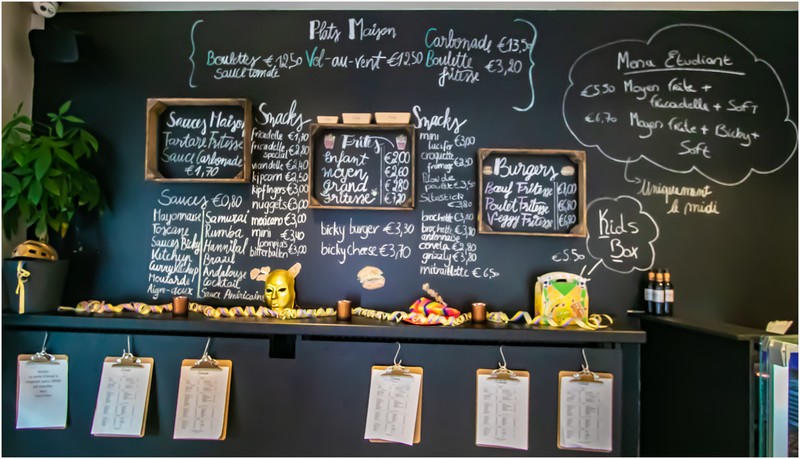 Plats Maison
Boulettes €12,50
Sauce tomate
Vol-au-vent €12,50
Carbonade €13,50
Boulette €3,20
fritesse
Menu Étudiant
€5,50 Moyen frite +
fricadelle + Soft
€6,70 Moyen frite + Bicky +
Soft
Uniquement
le midi
Kids
Box
€5,50
Sauces Maison
Tartare Fritesse
Sauce Carbonade
€1,70
Sauces €0,80
Mayonnaise
Toscane
Sauces Bicky
Kitchen
Curry Ketchup
Moutarde
Aigre-doux
Samurai
Rumba
Hannibal
Brazil
Andalouse
Cocktail
Sauce Américaine
Snacks
fricadelle €1,70
fricadelle €2,80
special
viandelle €2,40
kipcorn €2,50
kipfingers €3,00
nuggets €3,00
mexicano €3,00
mini €3,40
bitterballen €3,00
Frites
Enfant €2,00
moyen €2,60
grand €2,80
fritesse
bicky burger €3,30
bicky cheese €3,70
Snacks
mini
lucifer €3,00
croquette
fromage
Sibestick
brochette
brochette
ardennaise
cervela €2,80
grizzly €3,80
mitraillette €6,50
Burgers
Bœuf Fritesse
Poulet Fritesse
Veggy Fritesse